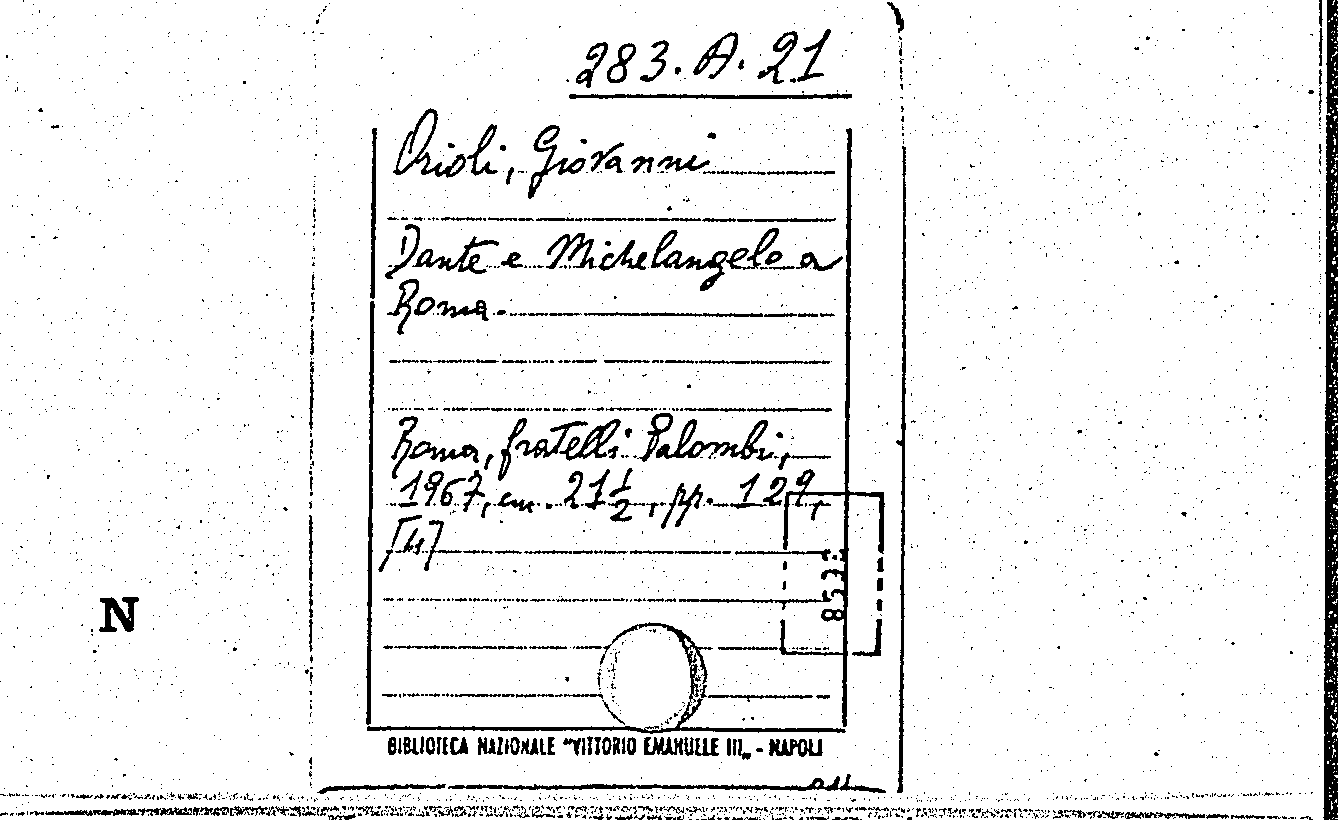 283.A.21
Orioli, Giovanni
Dante e Michelangelo a
Roma.
Roma, fratelli Palombi,
1967, cm. 21½, pp. 129,
[4]
N
BIBLIOTECA NAZIONALE "VITTORIO EMANUELE III„ - NAPOLI